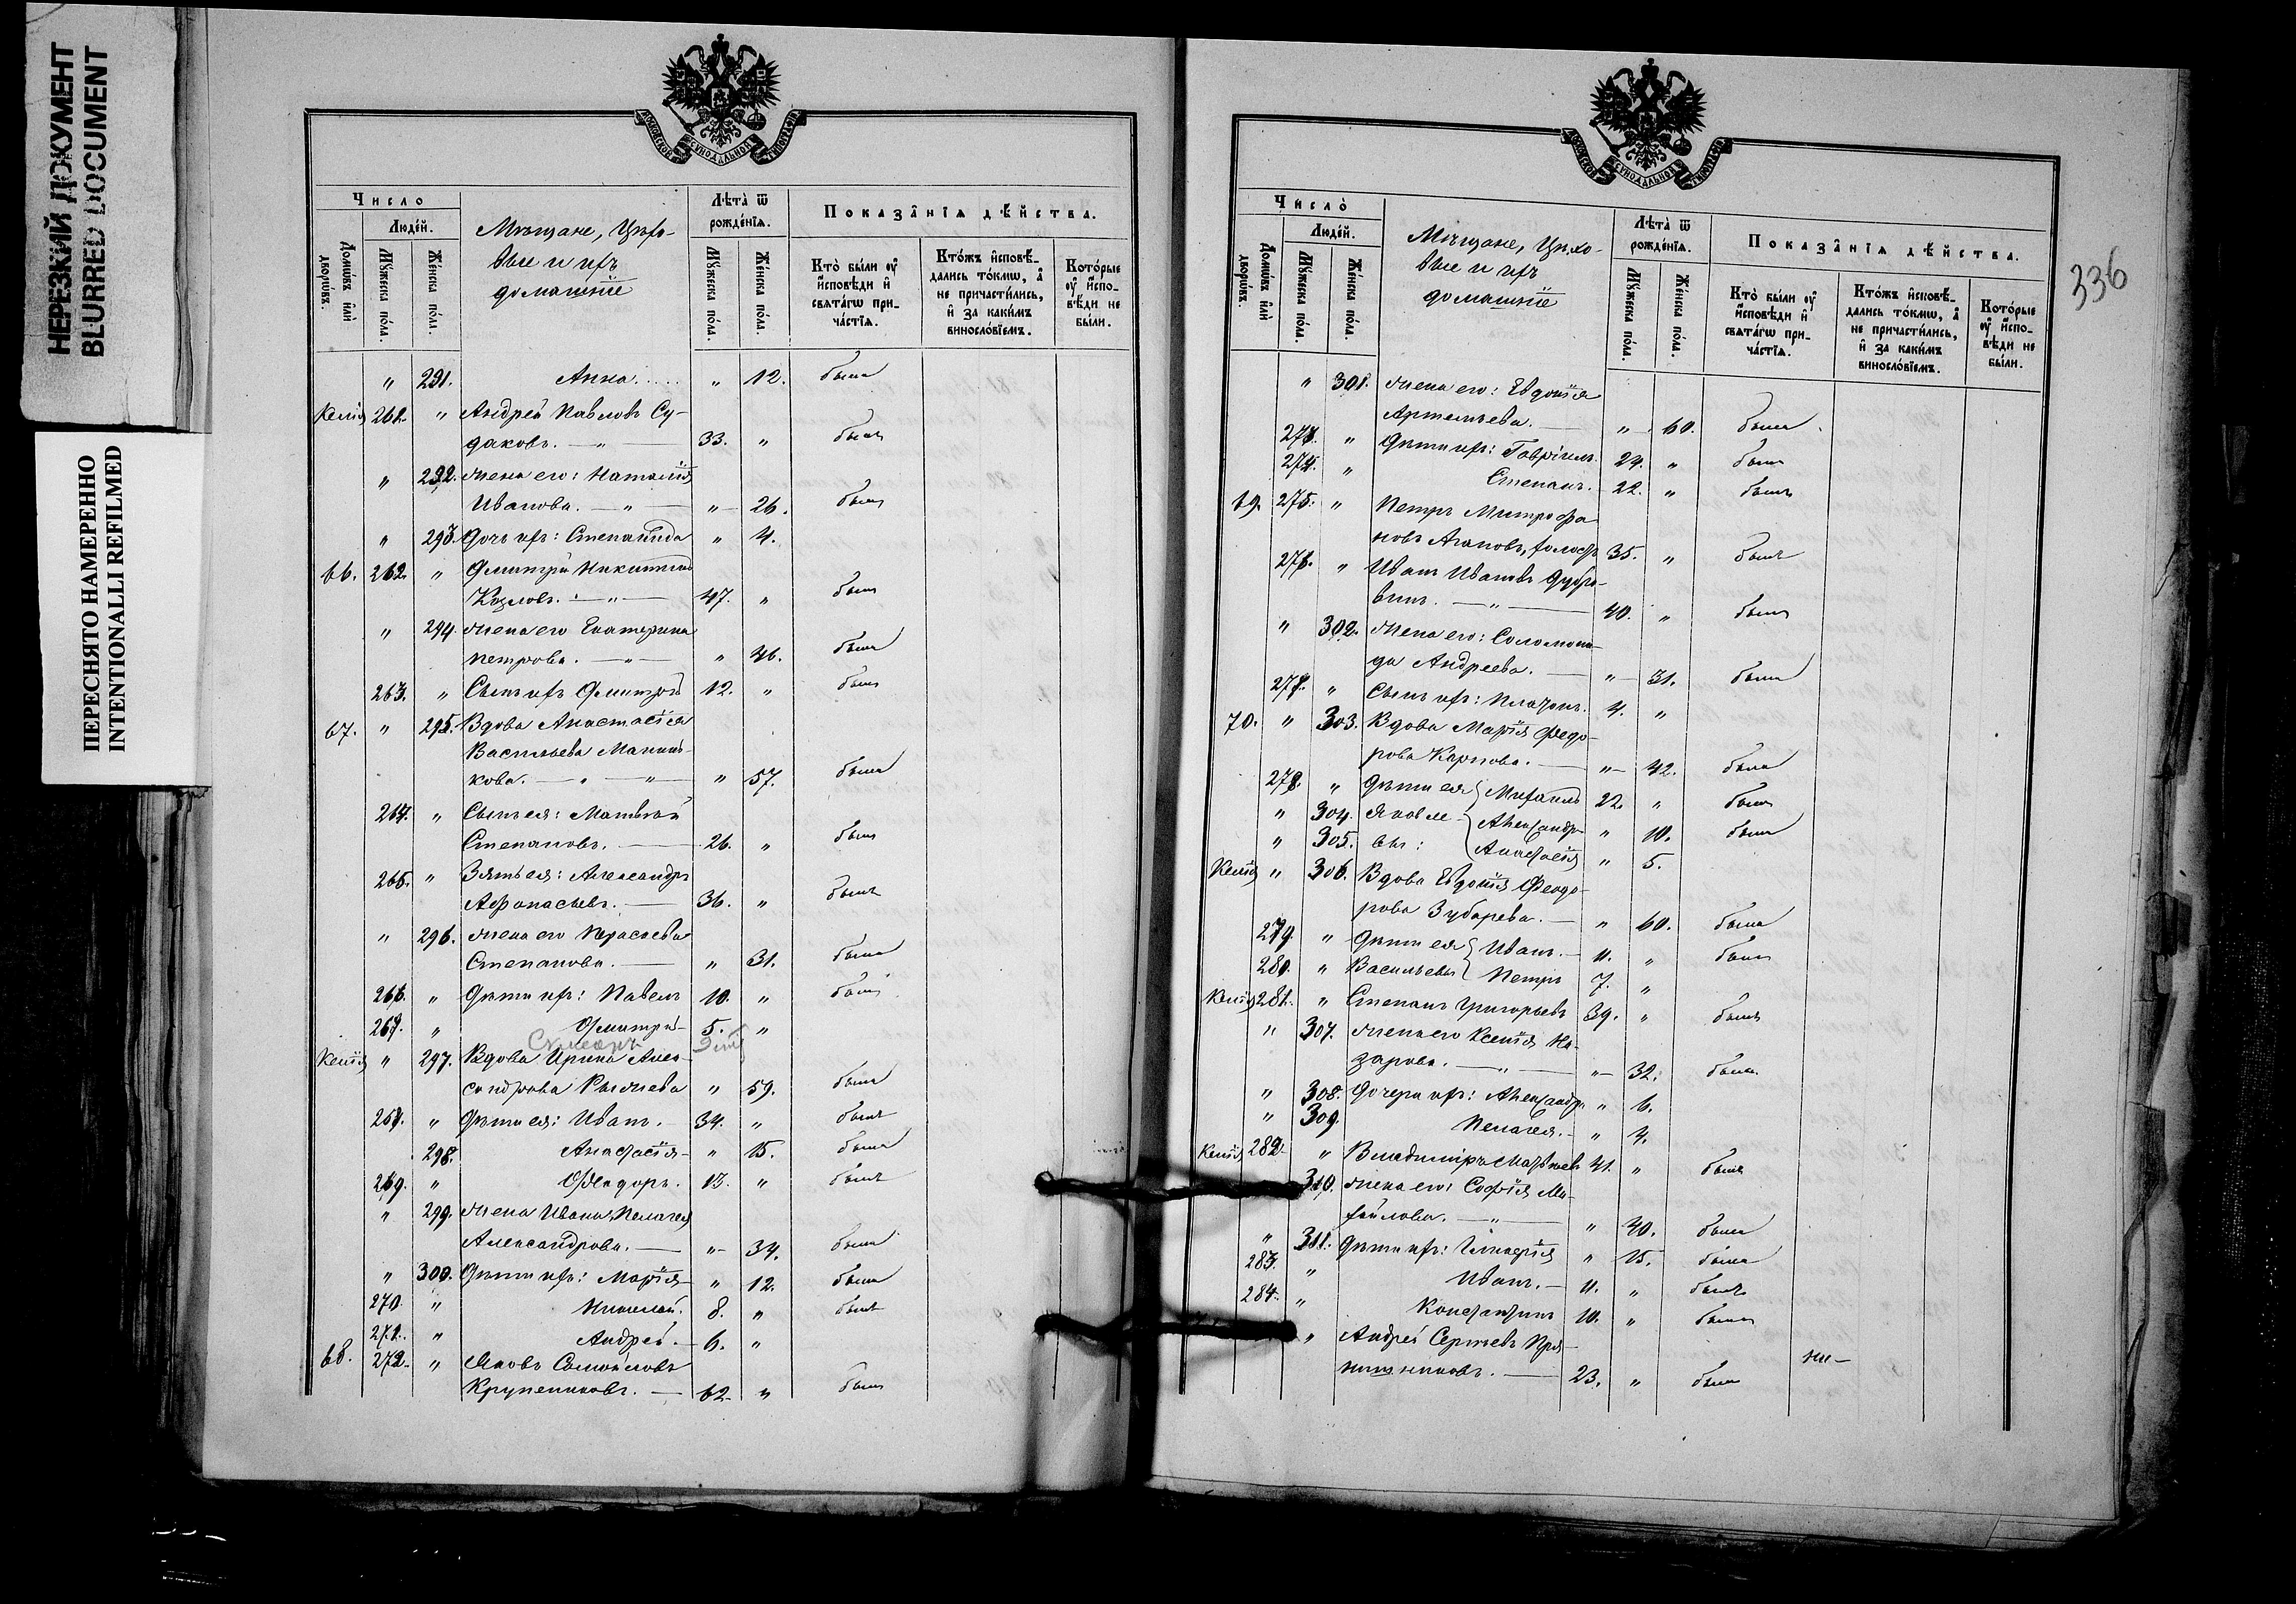 НЕРЕЗКИЙ ДОКУМЕНТ
BLURRED DOCUMENT
ПЕРЕСНЯТО НАМЕРЕННО
INTENTIONALLI REFILMED
МОСКОВСКОЙ СѴНОДАЛЬНОЙ ТИПОГРАФІИ
Число
Людей.
Домѡвъ или дворѡвъ.
Мꙋжеска пола.
Женска пола.
Мѣщане, Цехо-
вые и ихъ
домашніе
Лѣта ѿ рожденїѧ.
Мꙋжеска пола.
Женска пола.
Показанїѧ дѣйства.
Кто были оу исповѣди и свѧтагѡ причастїѧ.
Ктожъ исповѣдались токмѡ, а не причастились, и за какимъ винословїемъ.
Которые оу исповѣди не были.
" 291. Анна..... " 12. была
Келія 261. " Андрей Павловъ Су-
даковъ. — " — 33. " былъ
" 292. Жена его: Наталія
Иванова. — " — " 26. была
" 293. Дочь ихъ: Степанида " 4.
66. 262. " Дмитрій Никитинъ
Козловъ. — " — 47. " былъ
" 294. Жена его Екатерина
Петрова. — " — " 46. была
263. " Сынъ ихъ Дмитрій 12. " былъ
67. " 295. Вдова Анастасія
Васильева Манни-
кова. — " — " — " 57. была
264. " Сынъ ея: Матвѣй
Степановъ. — 26. " былъ
265. " Зять ея: Александръ
Афонасьевъ. — 36. " былъ
" 296. Жена его Параскева
Степанова. — " 31. была
266. " Дѣти ихъ: Павелъ 10. " былъ
267. " Дмитрій — 5. "
Симеонъ 3
Келія " 297. Вдова Ирина Алек-
сандрова Рыжнева " 59. была
268. " Дѣти ея: Иванъ. — 34. " былъ
298. Анастасія — " 15. была
269. " Ѳеодоръ. 13. " былъ
" 299. Жена Ивана Пелагея
Александрова. — " 34. была
" 300. Дѣти ихъ: Марія — " 12. была
270. " Николай. 8. " былъ
271. " Андрей. — 6. "
68. 272. " Яковъ Самойловъ
Крупениковъ. — 62. " былъ
336
МОСКОВСКОЙ СѴНОДАЛЬНОЙ ТИПОГРАФІИ
Число
Людей.
Домѡвъ или дворѡвъ.
Мꙋжеска пола.
Женска пола.
Мѣщане, Цехо-
вые и ихъ
домашніе
Лѣта ѿ рожденїѧ.
Мꙋжеска пола.
Женска пола.
Показанїѧ дѣйства.
Кто были оу исповѣди и свѧтагѡ причастїѧ.
Ктожъ исповѣдались токмѡ, а не причастились, и за какимъ винословїемъ.
Которые оу исповѣди не были.
" 301. Жена его: Евдокія
Артемьева. — " 60. была
273. " Дѣти ихъ: Гавріилъ. 24. " былъ
274. " Степанъ. 22. " былъ
69. 275. " Петръ Митрофа-
новъ Агаповъ, холостъ 35. " былъ
276. " Иванъ Ивановъ Дубро-
винъ. — " — 40. " былъ
" 302. Жена его: Соломони-
да Андреева. — " 31. была
277. " Сынъ ихъ: Платонъ. 4. "
70. " 303. Вдова Марія Ѳедо-
рова Карпова. — " 42. была
278. " Дѣти ея Михаилъ 22. " былъ
" 304. Яковле- Александра " 10. была
" 305. вы: Анастасія " 5.
Келія " 306. Вдова Евдокія Ѳеодо-
рова Зубарева. — " 60. была
279. " Дѣти ея Иванъ. — 11. " былъ
280. " Васильевы Петръ 7. "
Келія 281. " Степанъ Григорьевъ 39. " былъ
" 307. Жена его Ксенія На-
зарова. — " — " 32. была
" 308. Дочери ихъ: Александра " 6.
" 309. Пелагея. — " 4.
Келія 282. " Владиміръ Матѳѣевъ 41. " былъ
310. Жена его: Софія Ми-
хайлова. — " — " 40. была
" 311. Дѣти ихъ: Гликерія " 15. была
283. " Иванъ. — 11. " былъ
284. " Константинъ 10. " былъ
" Андрей Сергѣевъ Пря-
нишниковъ. — 23. " былъ